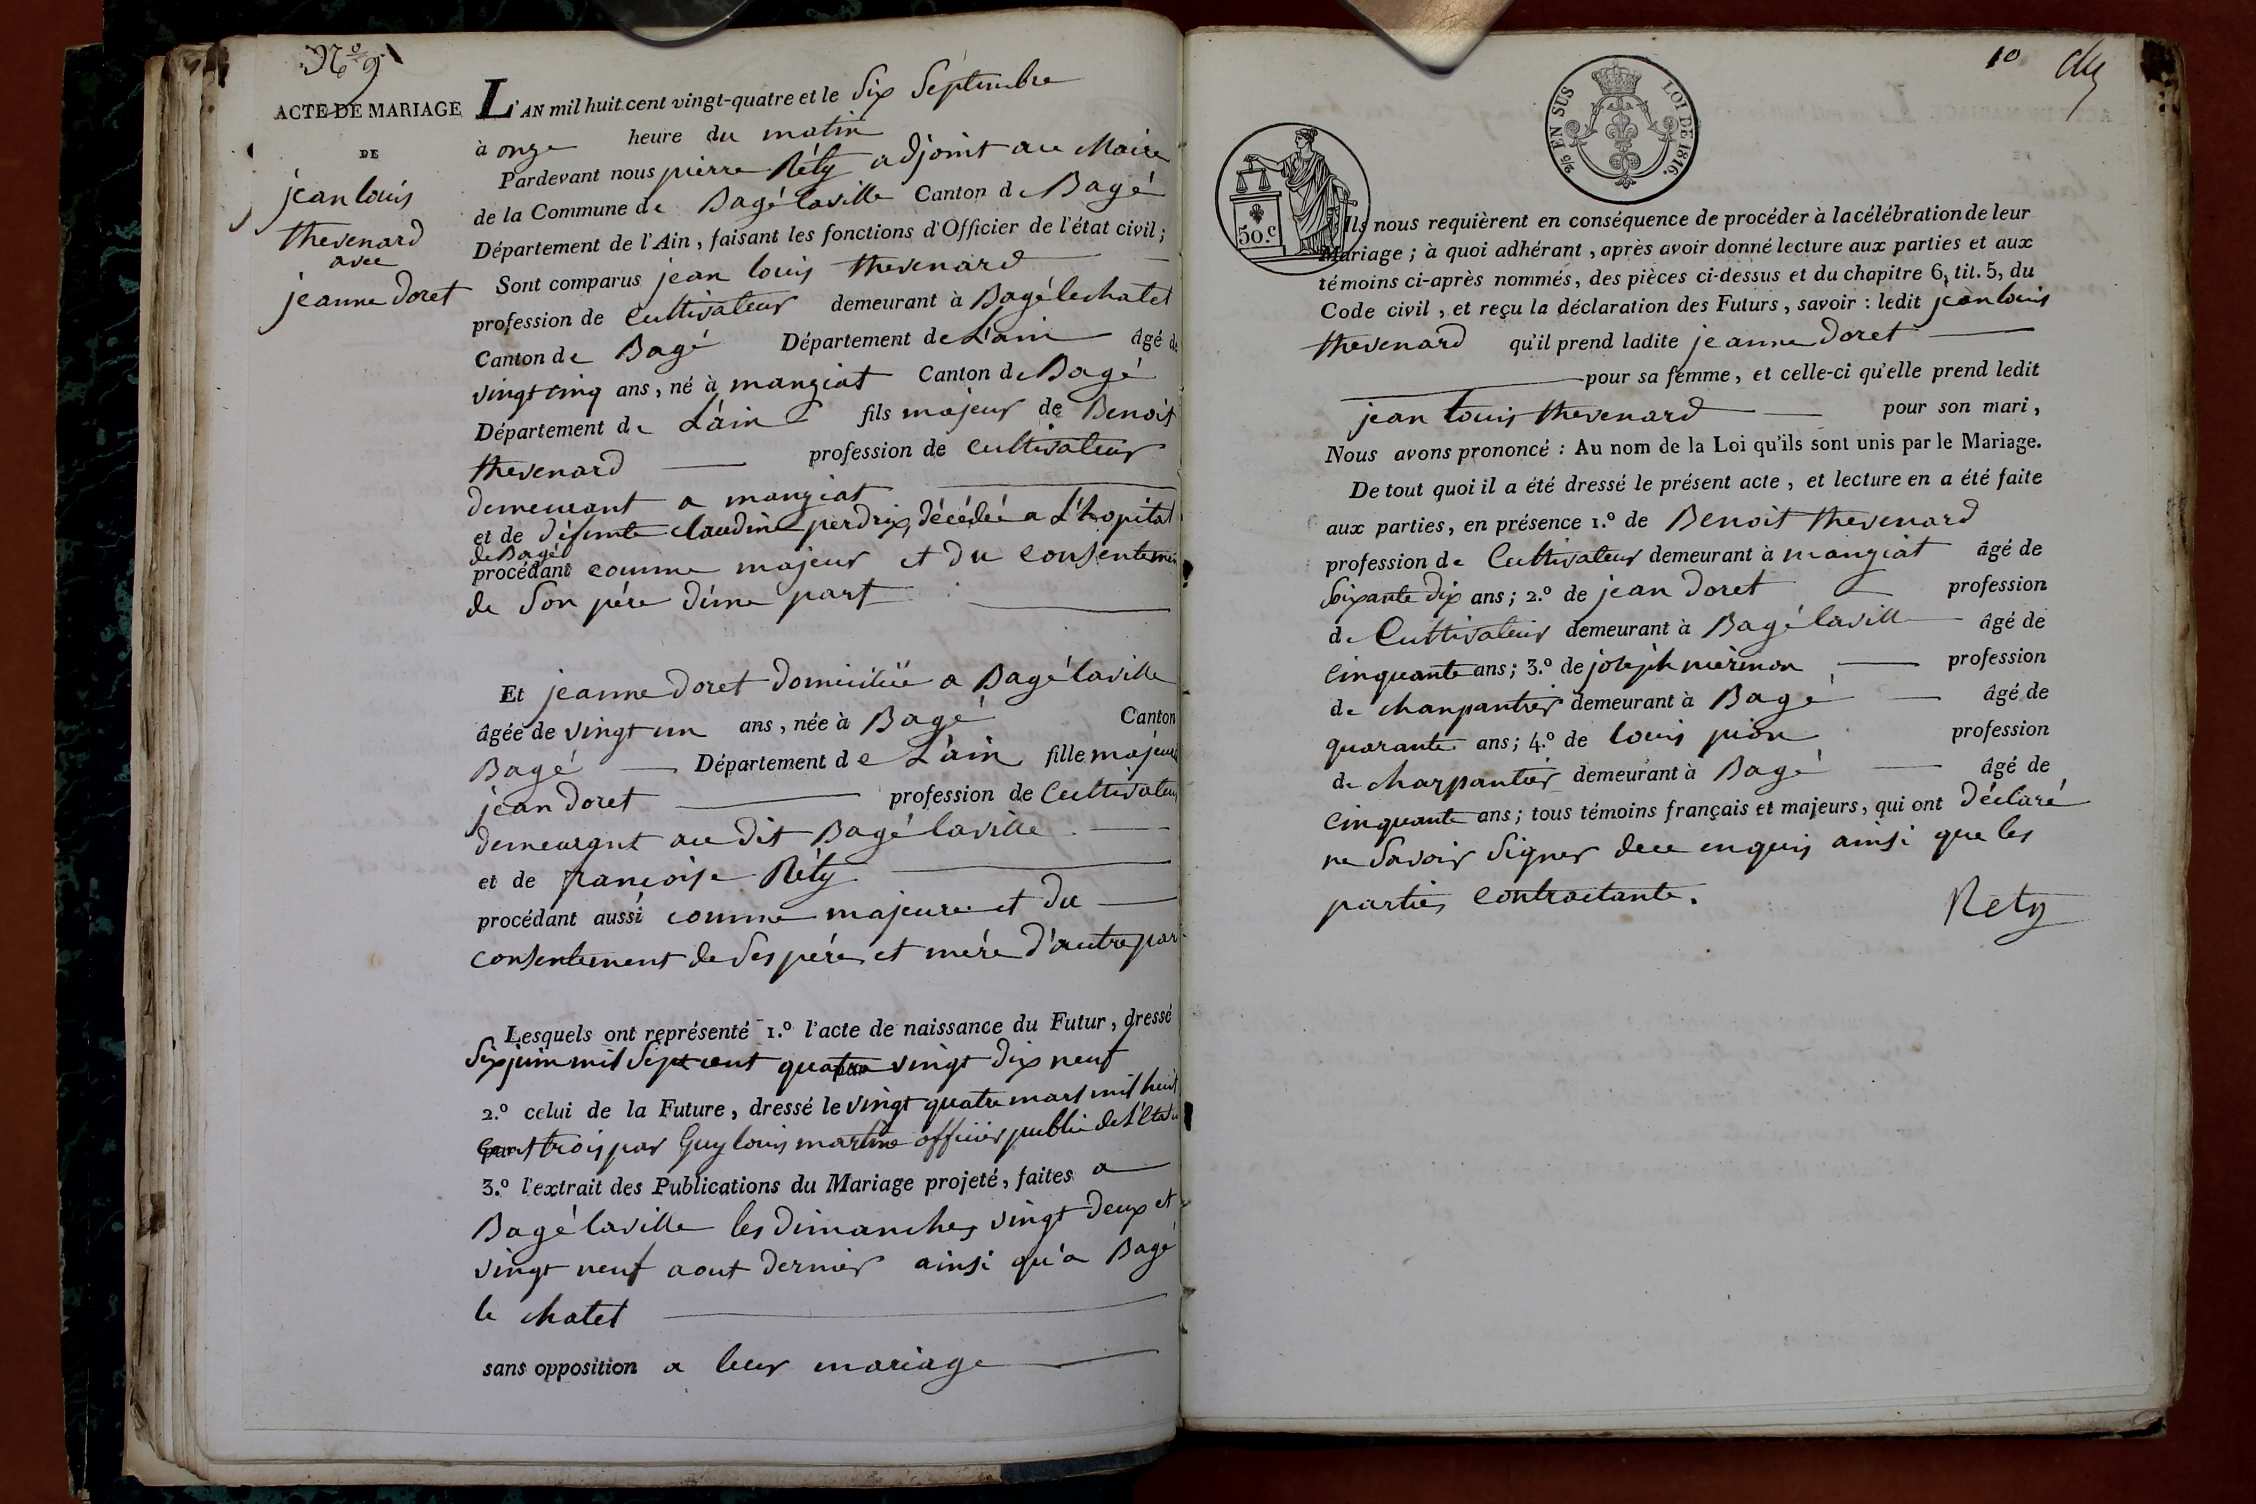 N.º 9
ACTE DE MARIAGE
DE
jean louis
thevenard
avec
jeanne doret
L'AN mil huit cent vingt-quatre et le Six Septembre
à onze heure du matin
Pardevant nous pierre Réty adjoint au Maire
de la Commune de Bagé laville Canton de Bagé
Département de l'Ain, faisant les fonctions d'Officier de l'état civil;
Sont comparus jean louis thevenard
profession de Cultivateur demeurant à Bagé lechatel
Canton de Bagé Département de L'ain âgé de
vingt cinq ans, né à manziat Canton de Bagé
Département de L'ain fils majeur de Benoit
thevenard profession de Cultivateur
demeurant a manziat
et de défunte claudine perdrix, décédée a L'hopital
de Bagé
procédant comme majeur et du consenteme
de Son père d'une part
Et jeanne doret domiciliée a Bagé laville
âgée de vingt un ans, née à Bagé Canton
Bagé Département de L'ain fille majeure
jean doret profession de Cultivateur
demeurant au dit Bagé laville
et de françoise Réty
procédant aussi comme majeure et du
consentement de Ses père et mère d'autre part
Lesquels ont représenté 1.º l'acte de naissance du Futur, dressé
Six juin mil Sept cent quatre vingt dix neuf
2.º celui de la Future, dressé le vingt quatre mars mil huit
cent trois par Guy louis martine officier public de L'état
3.º l'extrait des Publications du Mariage projeté, faites a
Bagé laville les dimanches vingt deux et
vingt neuf aout dernier ainsi qu'a Bagé
le chatel
sans opposition a leur mariage
10
5/6 EN SUS LOI DE 1816.
50.c
Ils nous requièrent en conséquence de procéder à la célébration de leur
Mariage; à quoi adhérant, après avoir donné lecture aux parties et aux
témoins ci-après nommés, des pièces ci-dessus et du chapitre 6, tit. 5, du
Code civil, et reçu la déclaration des Futurs, savoir: ledit jean louis
thevenard qu'il prend ladite jeanne doret
pour sa femme, et celle-ci qu'elle prend ledit
jean louis thevenard pour son mari,
Nous avons prononcé: Au nom de la Loi qu'ils sont unis par le Mariage.
De tout quoi il a été dressé le présent acte, et lecture en a été faite
aux parties, en présence 1.º de Benoit thevenard
profession de Cultivateur demeurant à manziat âgé de
Soixante dix ans; 2.º de jean doret profession
de Cultivateur demeurant à Bagé laville âgé de
cinquante ans; 3.º de joseph profession
de charpantier demeurant à Bagé âgé de
quarante ans; 4.º de louis pion profession
de charpantier demeurant à Bagé âgé de
cinquante ans; tous témoins français et majeurs, qui ont déclaré
ne Savoir Signer de ce enquis ainsi que les
parties contractante.
Rety